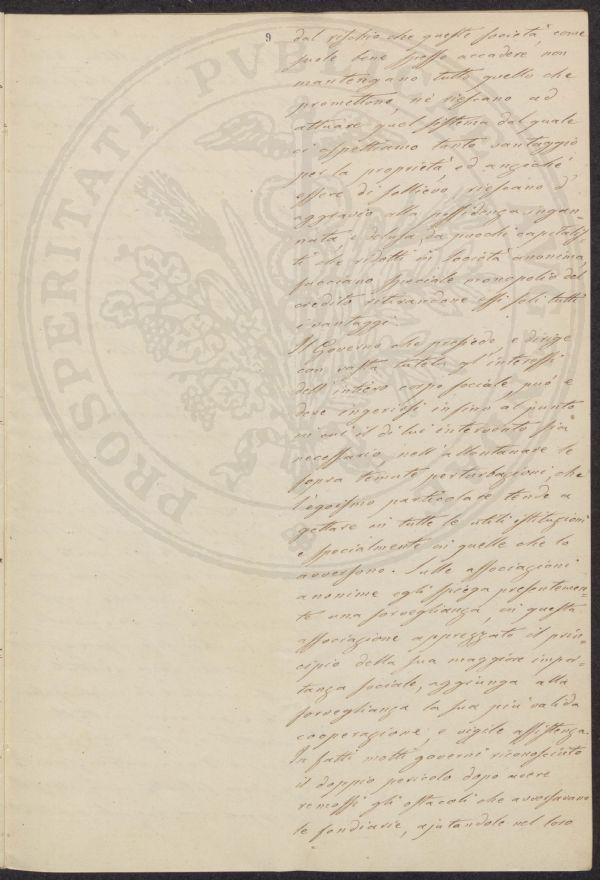 9
dal rischio che queste società, come
suole bene spesso accadere, non
mantengano tutto quello che
promettono, nè riescano ad
attuare quel sistema dal quale
ci aspettiamo tanto vantaggio
per la proprietà ed anzichè
essere di sollievo, riescano d'
aggravio alla possidenza ingan-
nata, e delusa, da pochi capitalis-
ti che ridotti in società anonima,
facciano speciale monopolio del
credito ritraendone essi soli tutti
i vantaggi.
Il Governo che presiede, e dirige
con vasta tutela gl'interessi
dell'intiero corpo sociale, può e
deve ingerirsi infino al punto
in cui il di lui intervento sia
necessario, nell'allontanare le
sopra temute perturbazioni, che
l'egoismo particolare tende a
gettare in tutte le utili istituzioni
e specialmente in quelle che lo
avversano. Sulle associazioni
anonime egli spiega presentemen-
te una sorveglianza, in questa
associazione apprezzato il prin-
cipio della sua maggiore impor-
tanza sociale, aggiunga alla
sorveglianza la sua più valida
cooperazione, e vigile assistenza.
In fatti molti governi riconosciuto
il doppio pericolo dopo avere
remossi gli ostacoli che avversavano
le fondiarie, ajutandole nel loro
PROSPERITATI PUBLICAE